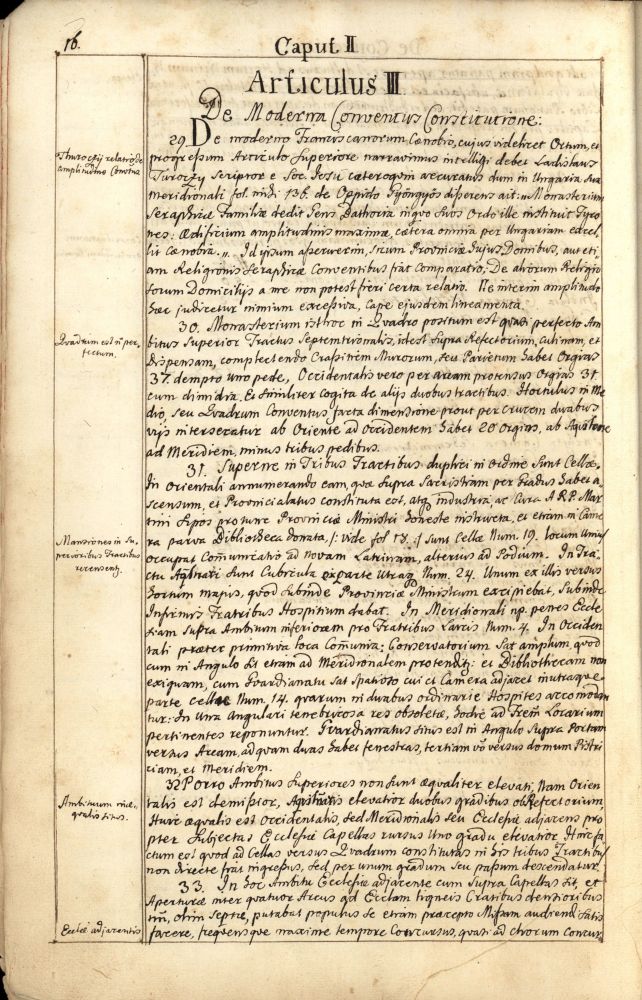 16.
Caput II
Articulus III
De Moderna Conventus Constitutione:
29. De moderno Franciscanorum Cænobio, cujus videlicet Ortum, et
Thuroczÿ relatio de
amplitudine Conventus
progressum Articulo Superiore narravimus intelligi debet Ladislaus
Turoczy Scriptor e Soc. Iesu cæteroqin accuratus dum in Ungaria sua
meridionali fol. mihi 136. de Oppido Gyöngyös disserens ait: Monasterium
Seraphicæ Familiæ dedit Gens Bathoria in quo suos Ordo ille instituit Tyro-
nes: Ædificium amplitudinis maximæ, cætera omnia per Ungariam excel-
lit Cænobia.,, Id ipsum asseverem, si cum Provinciæ hujus Domibus, aut eti-
am Religionis Seraphicæ Conventibus fiat Comparatio; De aliorum Religio-
sorum Domicilijs a me non potest fieri certa relatio. Ne interim amplitudo
hæc judicetur nimium excessiva, Cape ejusdem lineamenta.
30. Monasterium isthoc in Quadro positum est quasi perfecto Am-
Quadrum est in per-
fectum.
bitus Superior Tractus Septemtrionalis, idest supra Refectorium, culinam, et
Dispensam, complectendo Crassitiem Murorum, seu Parietum habet Orgias
37. dempto uno pede, Occidentalis vero per aream protensus Orgias 31
cum dimidia. Et similiter cogita de alijs duobus tractibus. Hortulus in Me-
dio, seu Quadrum Conventus facta dimensione prout per crucem duabus
vijs intersecatur ab Oriente ad Occidentem habet 20 Orgias, ab Aquilone
ad Meridiem, minus tribus pedibus.
31. Superne in Tribus Tractibus duplici in ordine sunt Cellæ,
In Orientali annumerando eam, quæ supra Sacristiam per Gradus habet a-
scensum, et Provincialatus constituta est, atq industria, ac Cura A R P. Mar-
tini Sipos pro tunc Provinciæ Ministri honeste instructa, et etiam in Came-
Mansiones in Su-
perioribus Tractibus
recensentur.
ra parva Bibliotheca donata, /: vide fol 13. :/ sunt Cellæ Num. 19. locum Unius
occupat Communicatio ad novam Latrinam, alterius ad Podium. In Tra-
ctu Aqlinari sunt Cubicula ex parte Utraq Num. 24. Unum ex illis versus
hortum majus, quod subinde Provinciæ Ministrum excipiebat, subinde
Infirmis Fratribus Hospitium dabat. In Meridionali np. penes Eccle-
siam supra Ambitum inferiorem pro Fratribus Laicis Num. 4. In Occiden-
tali præter primitiva loca Communia; Conservatorium sat amplum, quod
cum in Angulo sit etiam ad Meridionalem protenditur: et Bibliothecam non
exiguam, cum Guardianatu sat spatioso cui et Camera adjacet in utraque
parte Cellæ Num. 14. quarum in duabus ordinarie Hospites accommodan-
tur: In Una Angulari tenebricosa res obsoletæ, hodie ad Locarium
pertinentes reponuntur. Guardianatus situs est in Angulo supra Portam
versus Aream, ad quam duas habet fenestras, tertiam vero versus domum Pistri-
ciam, et Meridiem.
32. Porro Ambitus superiores non sunt æqualiter elevati, Nam Orien-
Ambituum inæ-
qualis situs.
talis est demissior, Aqilinaris elevatior duobus gradibus ob Refectorium,
Huic æqualis est Occidentalis, sed Meridionalis seu Ecclesiæ adjacens pro-
pter subjectas Ecclesiæ Capellas rursus Uno gradu elevatior. Hinc fa-
ctum est quod ad Cellas versus Quadrum constitutas in his tribus Tractibus
non directe fiat ingressus, sed per unum gradum seu passum descendatur.
33. In hoc Ambitu Ecclesiæ adjacente cum supra Capellas sit, et
Aperturæ inter quatuor Arcus ad Ecclam ligneis Cratibus densioribus
olim septæ, putabat populus se etiam præcepto Missam audiendi satis-
Ecclæ adjacentis
facere, frequensque maxime tempore Concursus, quasi ad chorum Concur-